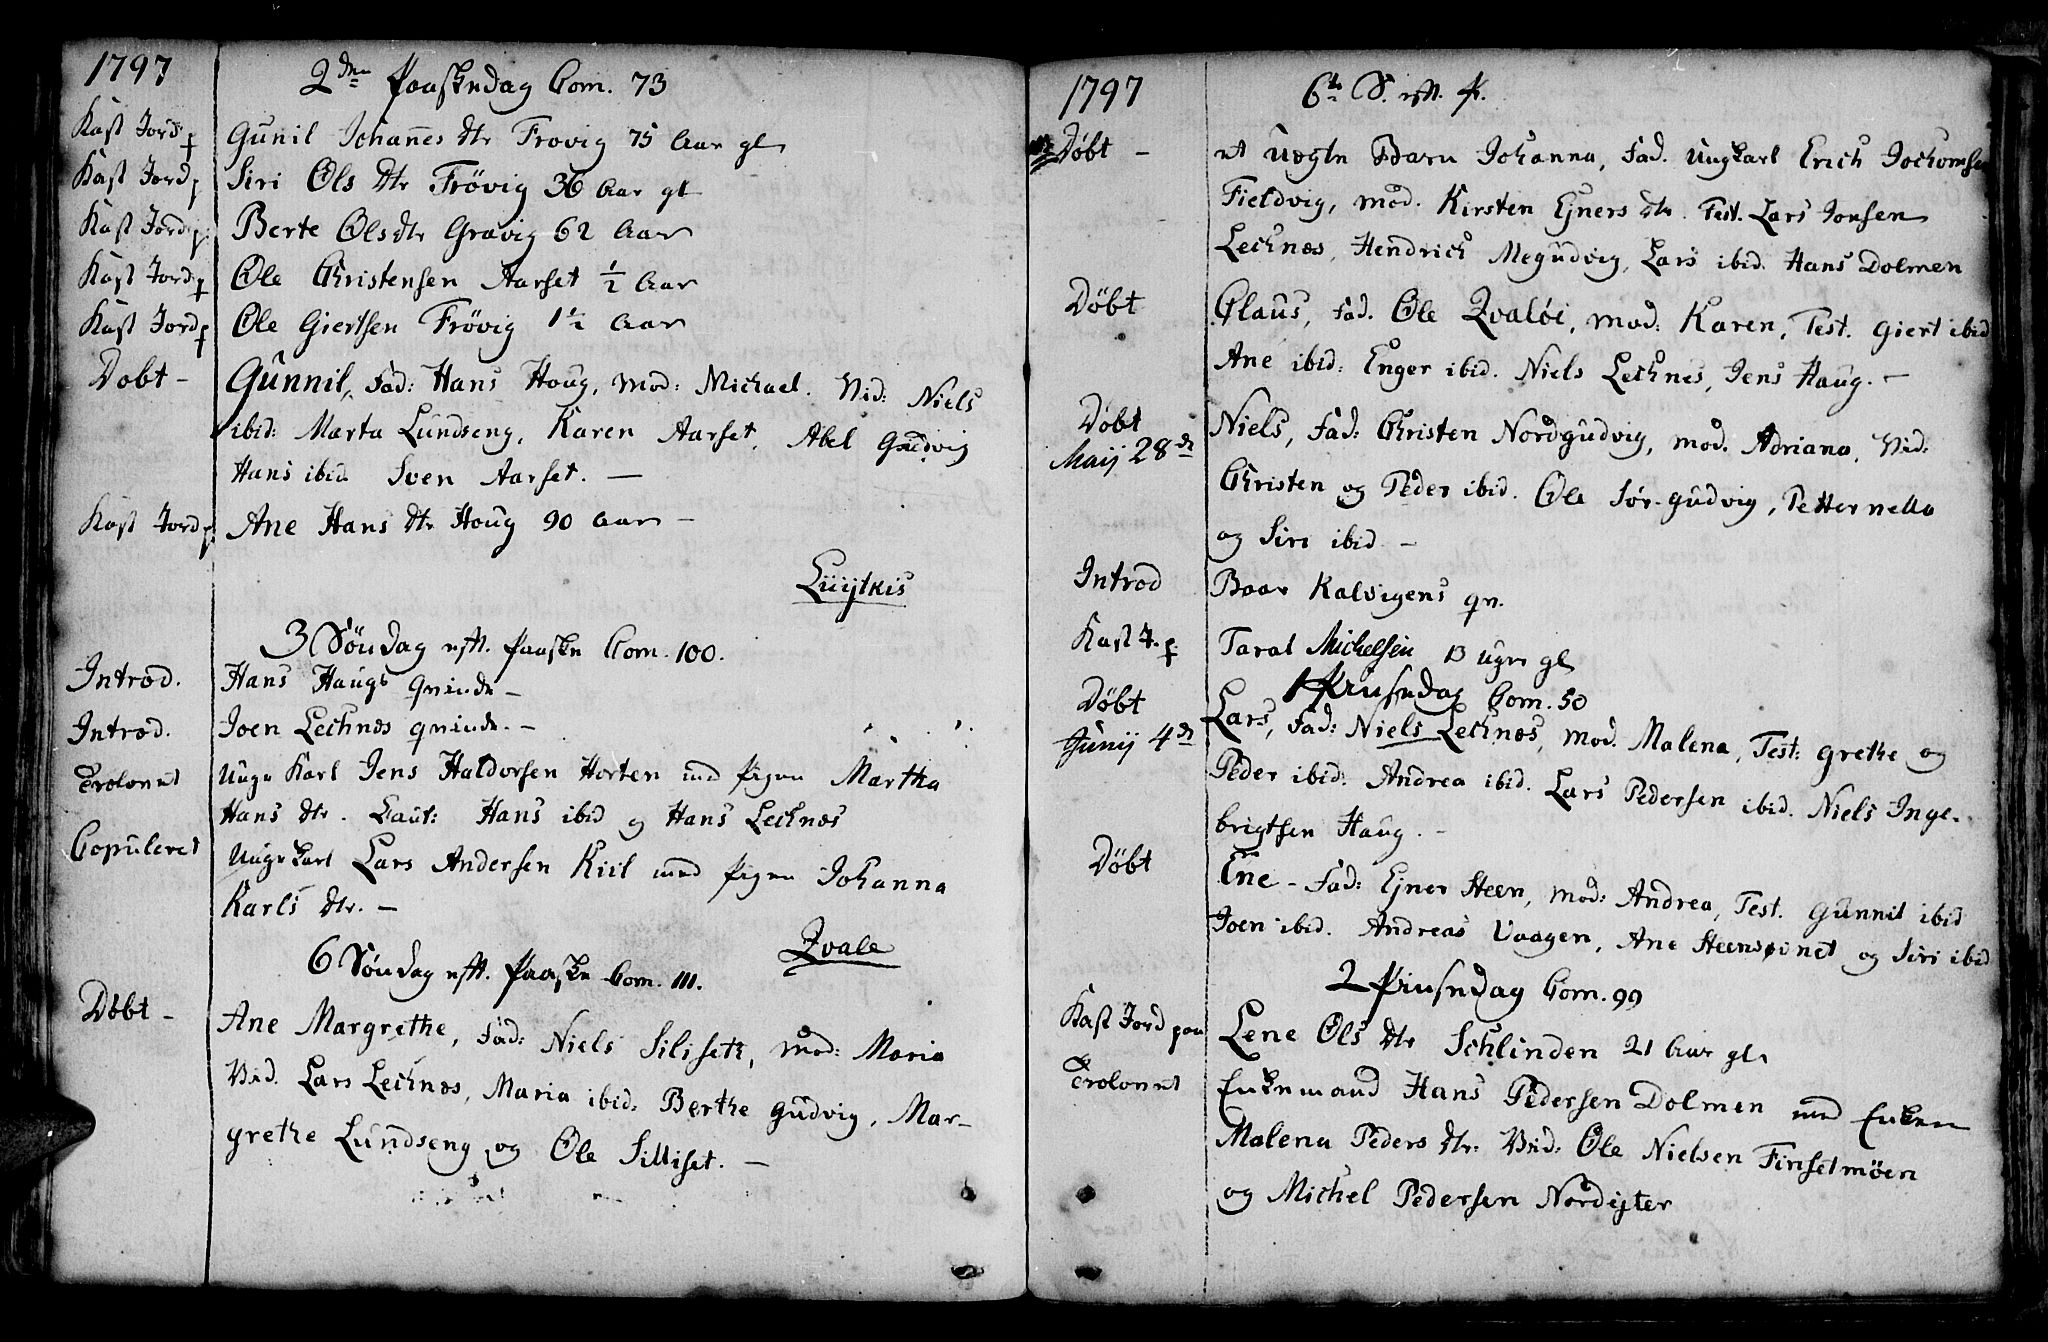 1797
2den Paaskedag Com. 73
Kast Jord p Gunil Johannes dtr Frøvig 75 Aar gl
Kast Jord p Siri Ols dtr Frövig 36 Aar gl
Kast Jord p Berte Ols dtr Gravig 62 Aar
Kast Jord p Ole Christensen Aarset ½ Aar
Kast Jord p Ole Giertsen Frövig 1½ Aar
Døbt - Gunnil, fad: Hans Houg, mod: Michael. Vid: Niels
ibid: Marta Lundseng, Karen Aarset, Abel Gudvig
Hans ibid Sven Aarset. —
Kast Jord p Ane Hans dtr Houg 90 Aar —
3 Söndag eft. Paaske Com. 100.
Introd. Hans Haugs qvinde —
Introd. Joen Lechnæs qvinde. —
Trolovet Unge Karl Jens Haldorsen Horten med Pigen Martha
Hans dtr. Caut: Hans ibid og Hans Lechnæs
Copuleret Ungekarl Lars Andersen Kiil med Pigen Johanna
Karls dtr. —
Qvale
6 Söndag eft. Paaske Com. 111.
Døbt - Ane Margrethe, fad: Niels Siliset, mod: Maria
Vid. Lars Lechnæs, Maria ibid: Berthe Gudvig, Mar-
grethe Lundseng og Ole Silliset. —
1797
6te S. eft. P.
Døbt - et uegte Barn Johanna, fad. Ungkarl Erich Jochomsen
Fieldvig, mod. Kirsten Ejners dtr. Test. Lars Jonsen
Lechnæs, Hendrich Megudvig, Lars ibid. Hans Dolmen
Døbt Claus, fad. Ole Qvalöi, mod: Karen, Test. Giert ibid
Ane ibid: Enger ibid. Niels Lechnes, Jens Haug. —
Døbt Niels, fad: Christen Nordgudvig, mod. Adriana, Vid:
Maij 28de Christen og Peder ibid. Ole Sør-gudvig, Petternella
og Siri ibid —
Introd Baar Kalvigens qv.
Kast J. p. Taral Michelsen 13 uger gl
1 Pinsedag Com. 50
Døbt Lars, fad: Niels Lechnæs, mod. Malena, Test: Grethe og
Junij 4de Peder ibid: Andrea ibid. Lars Pedersen ibid. Niels Inge-
brigtsen Haug. —
Døbt Ene - fad: Ejner Steen, mod: Andrea, Test. Gunnil ibid
Joen ibid. Andreas Vaagen, Ane Steensøinet og Siri ibid
2 Pinsedag Com. 99
Kast Jord paa Lene Ols dtr Schlinden 21 Aar gl
Trolovet Enkemand Hans Pedersen Dolmen med Enken
Malena Peders dtr. Vid: Ole Nielsen Finsetmöen
og Michel Pedersen Nordijter